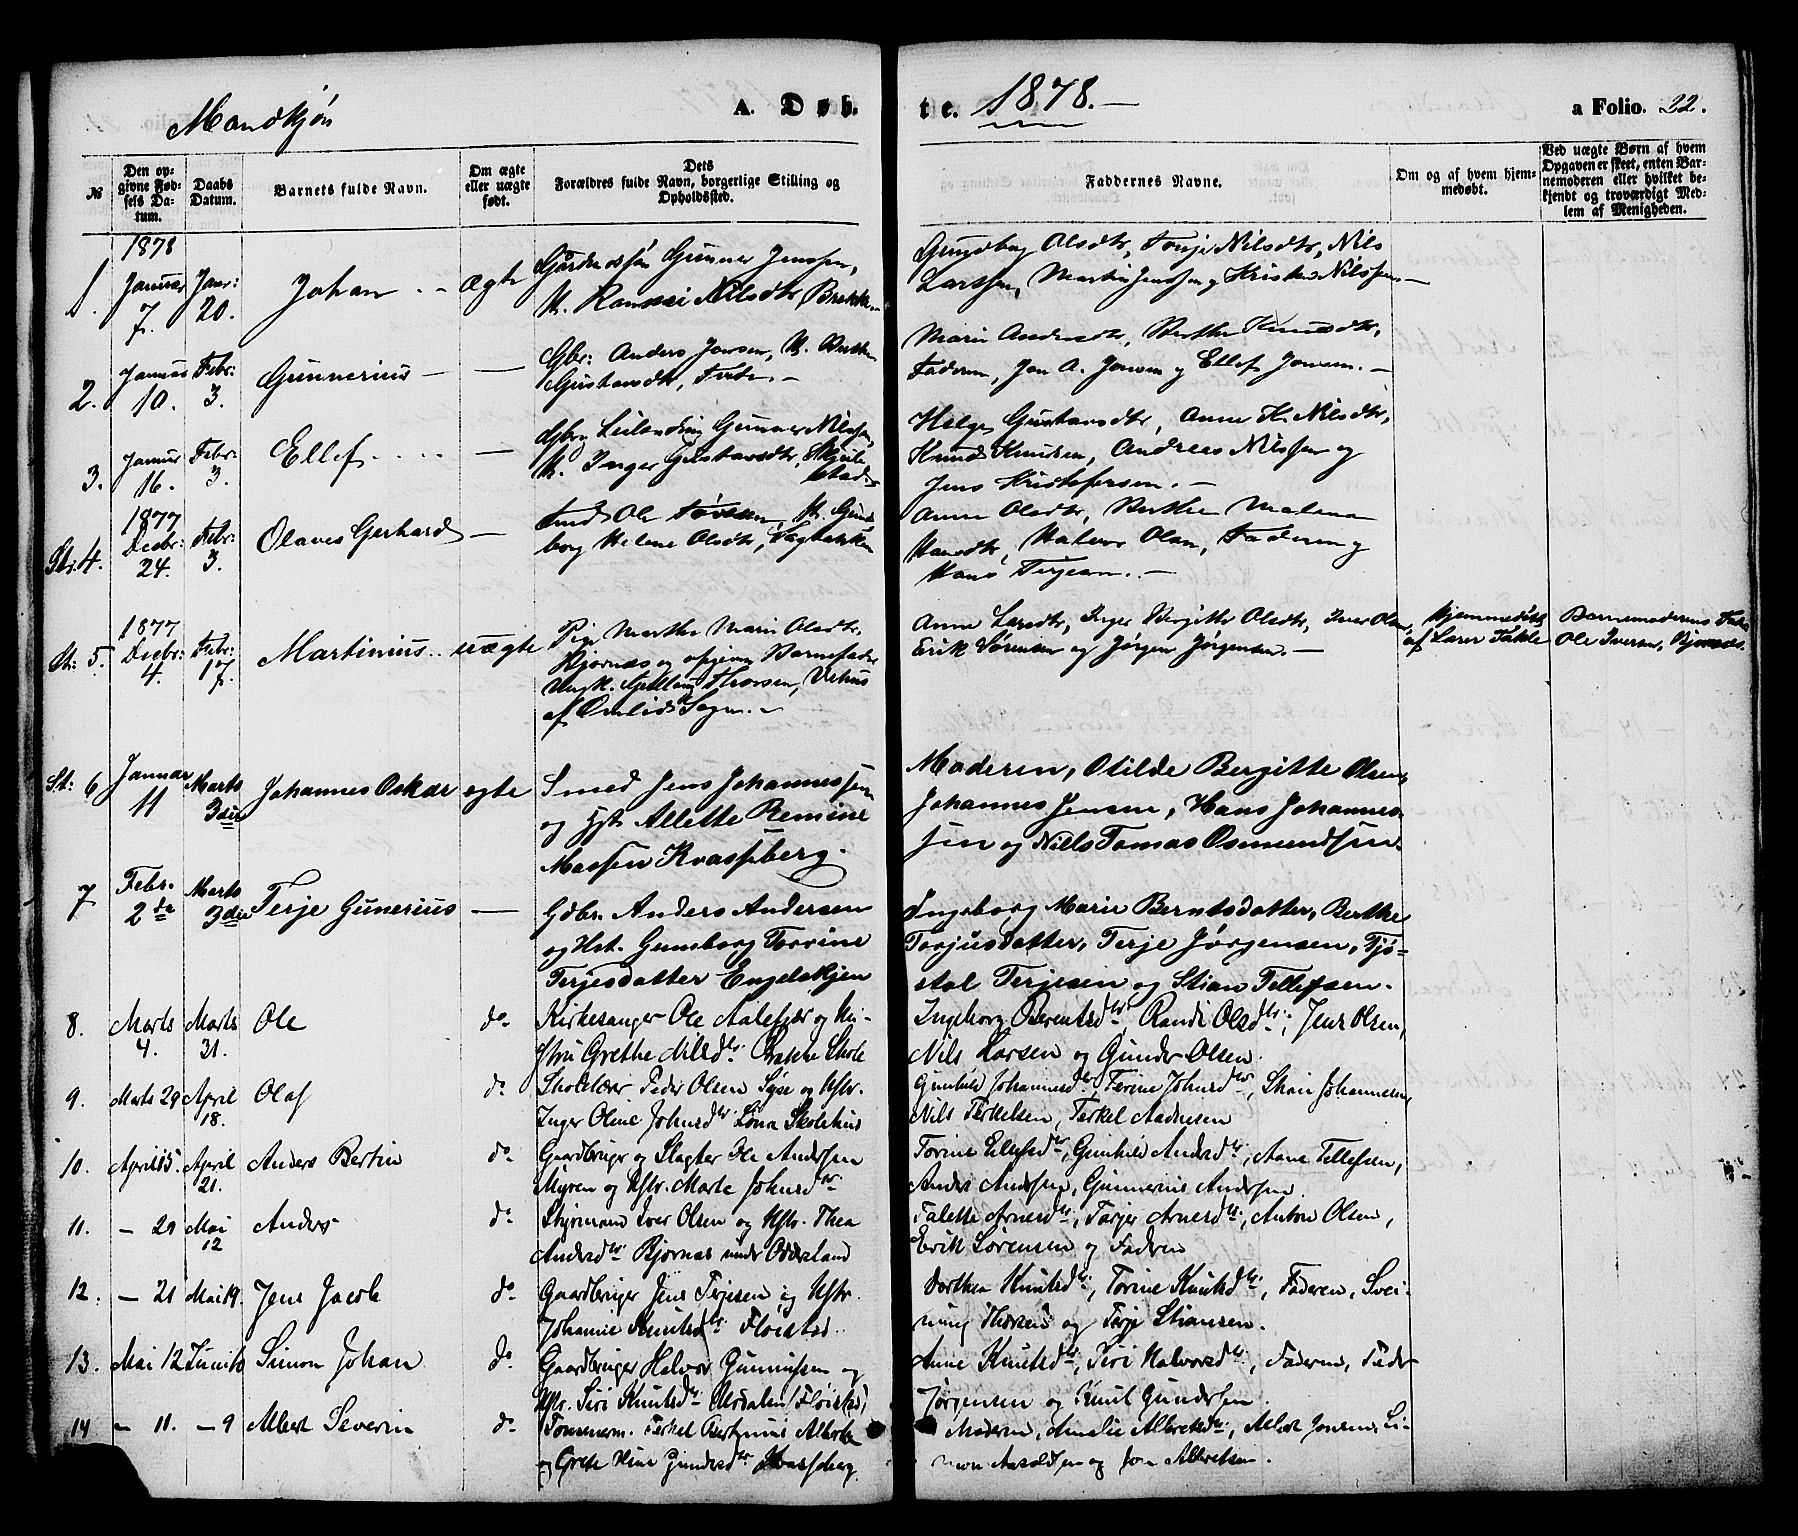 Mandkjøn
A. Døbte. 1878.—
a Folio. 22.
№
Den opgivne Fødsels Datum.
Daabs Datum.
Barnets fulde Navn.
Om ægte eller uægte født.
Dets Forældres fulde Navn, borgerlige Stilling og Opholdssted.
Faddernes Navne.
Om og af hvem hjemmedøbt.
Ved uægte Børn af hvem Opgaven er skeet, enten Barnemoderen eller hvilket bekjendt og troværdigt Medlem af Menigheden.
1878
1. Januar 7. Janr: 20. Johan ægte
Gunner Jensen,
H. Nilsdtr Brekke
Olsdtr, Nilsdtr, Nils
Larssen, Martin Jenssen og Kristen Nilssen.—
2. Januar 10. Febr: 3. Gunnerius — —
Gbr: Anders Jonsen, H. Berthe
Gustavsdtr, —
Maren Andersdtr, Berthe Knudsdtr,
Faderen, Jon A. Jonsen og Ellef Jonsen.—
3. Januar 16. Febr: 3. Ellef —
Gunner Nilssen,
H. Inger Gustavsdtr,
Helge Gustavsdtr, Anne K. Nilsdtr,
Knud Knudsen, Andreas Nilssen og
Jens Kristofersen.—
St: 4. 1877 Decbr: 24. Febr: 3. Olaves Gerhard —
Ole H. Gunborg Helene Olsdtr,
Anne Olsdtr, Berthe Malena
Hansdtr, Halvor Olsen, Faderen og
Hans Terjesen.—
St: 5. 1877 Decbr: 4. Febr: 17. Martinius uægte
Pige Marthe Marie Olsdtr.
Bjornæs og opgiven Barnefader
Ungk. Thorsen,
af Omlids Sogn.—
Anne Larsdtr, Inger Birgitte Olsdtr, Iver Olsen,
Erik Sørensen og Jørgen Jørgensen.—
Hjemmedøbt
af Lærer Takle
Barnemoderens Fader
Ole Iversen, Bjornæs.
St: 6 Januar 11 Marts 3die Johannes Oskar ægte
Smed Jens Johannessen
og Hst. Allette Remine
Massen Kvasseberg.
Moderen, Otilde Bergitte Olsen,
Johannes Jensen, Hans Johannessen
og Niels Tomas Osmundsen.
7 Febr. 2de Marts 3die Terje Gunerius —
Gdbr. Anders Andersen
og Hst. Gunborg Torine
Terjesdatter Engelskjen
Ingeborg Marie Berntsdatter, Berthe
Torjusdatter, Terje Jørgensen, Tjøstol
Terjesen og Stian Tellefsen.
8. Marts 4. Marts 31. Ole do
Kirkesanger Ole Aalefjær og Hustru
Grethe Nilsdtr. Brække Skole
Ingeborg Berentsdtr, Randi Olsdtr, Jens Olsen,
Nils Larsen og Gunder Olsen.
9. Marts 29 April 18. Olaf do
Skolelærer Peder Olsen og Hstr.
Inger Oline Johnsdtr. Skolehus
Gunhild Johannesdtr, Terine Johnsdtr, Johannesen,
Nils Terkelsen, Terkel Aadnesen
10. April 15. April 21. Anders Bertin do
Gaardbruger og Slagter Ole Andersen
Myren og Hstr. Marte Johnsdtr
Torine Ellefsdtr, Gunhild Andersdtr, Aane Tellefsen,
Anders Andersen, Gunnerius Andersen
11. — 29 Mai 12 Anders do
Styrmand Iver Olsen og Hstr. Thea
Andersdtr. Bjornæs under Odderland
Talette Arnesdtr, Torjer Arnesdtr, Anton Olsen,
Erik Sørensen og Faderen
12. — 21 Mai 19. Jens Jacob do
Gaardbruger Jens Terjesen og Hstr.
Johanne Knutsdtr Fløistad.
Dorthea Knutsdtr, Torine Knutsdtr, Faderen, Sveinung
Thorsen og Terje Stiansen.
13. Mai 12 Juni 10 Simon Johan do
Gaardbruger Halvor Gunnufsen og
Hstr. Siri Knutsdtr. (Fløistad)
Anne Knutsdtr, Siri Halvorsdtr, Faderen, Peder
Jørgensen og Knut Gundersen.
14 — 11. — 9 Albert Severin do
Tømmerm. Terkel Albertsen
og Grete Gundersdtr Kvasseberg
Moderen, Amalie Albretsdtr, Albert Jensen, Simon
og Jon Albretsen.